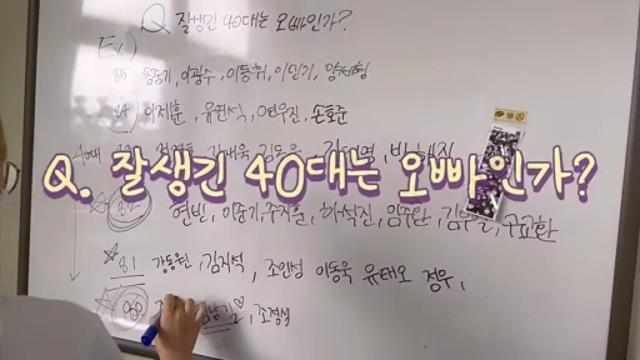 Q 잘생긴 40대는 오빠인가?
Ex)
85 송중기, 이광수, 이동휘, 이민기,
84 이제훈, 유연석, 연우진, 손호준
40대
Q. 잘생긴 40대는 오빠인가?
82 현빈, 이준기, 주지훈, 하석진, 임주환, 김무열, 구교환
☆ 81 강동원, 김지석, 조인성 이동욱 유태오 정우,
☆ 80 김남길♡, 조정석